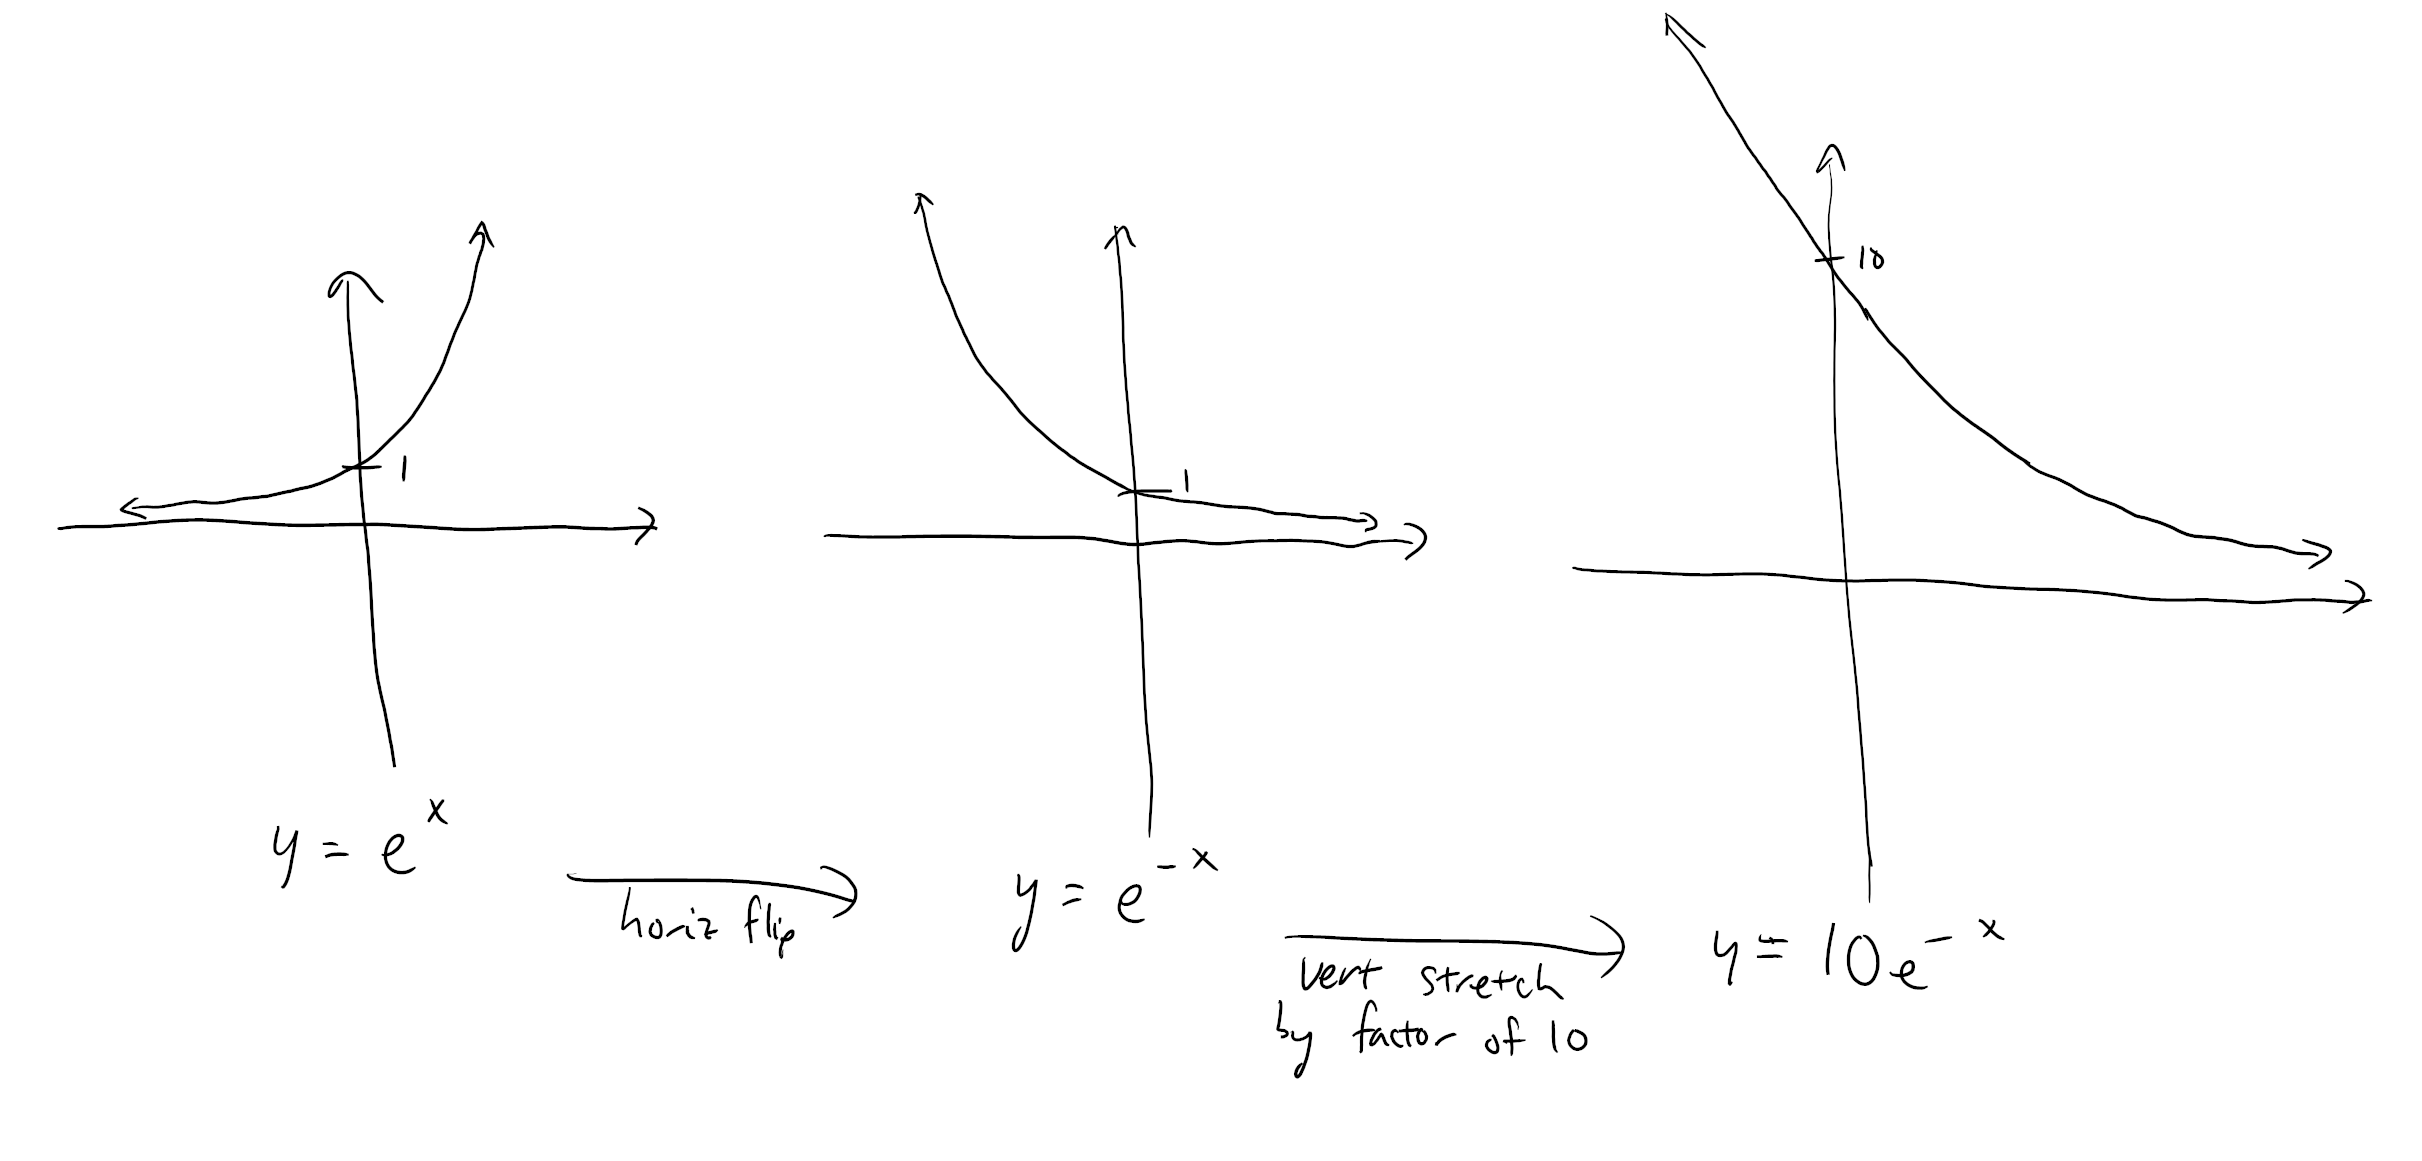 1
1
10
y = e^x
horiz flip
y = e^-x
vert stretch
by factor of 10
y = 10e^-x